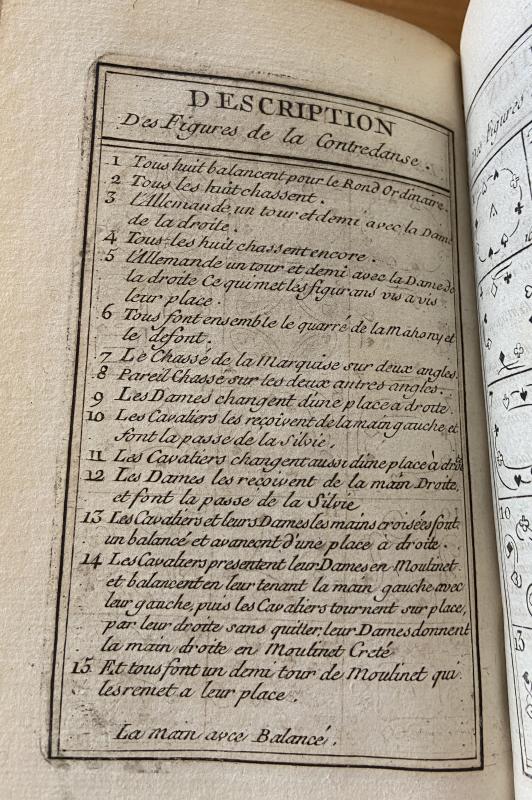 DESCRIPTION
Des Figures de la Contredanse.
1 Tous huit balancent pour le Rond Ordinaire.
2 Tous les huit chassent.
3 L'Allemande un tour et demi avec la Dame
de la droite.
4 Tous les huit chassent encore.
5 L'Allemande un tour et demi avec la Dame de
la droite Ce qui met les figurans vis a vis
leur place.
6 Tous font ensemble le quarré de la Mahony et
le defont.
7 Le Chassé de la Marquise sur deux angles.
8 Pareil Chassé sur les deux autres angles.
9 Les Dames changent d'une place à droite.
10 Les Cavaliers les reçoivent de la main gauche et
font la passe de la Silvie.
11 Les Cavaliers changent aussi d'une place à droite
12 Les Dames les reçoivent de la main Droite,
et font la passe de la Silvie
13 Les Cavaliers et leurs Dames les mains croisées font
un balancé et avancent d'une place à droite.
14 Les Cavaliers presentent leur Dames en Moulinet
et balancent en leur tenant la main gauche avec
leur gauche, puis les Cavaliers tournent sur place,
par leur droite sans quitter, leur Dames donnent
la main droite en Moulinet Creté
15 Et tous font un demi tour de Moulinet qui
les remet a leur place.
La Main avec Balancé.
Des Figures
10